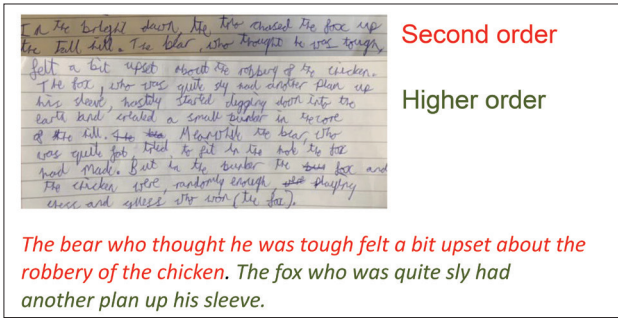 In the bright dawn, the trio chased the fox up
the tall hill. The bear, who thought he was tough,
felt a bit upset about the robbery of the chicken.
The fox, who was quite sly had another plan up
his sleeve, hastily started digging down into the
earth and created a small bunker in the core
of the hill. Meanwhile the bear, who
was quite fat, tried to fit in the hole the fox
had made. But in the bunker the fox and
the chicken were, randomly enough, playing
chess and guess who won (the fox).
Second order
Higher order
The bear who thought he was tough felt a bit upset about the
robbery of the chicken. The fox who was quite sly had
another plan up his sleeve.